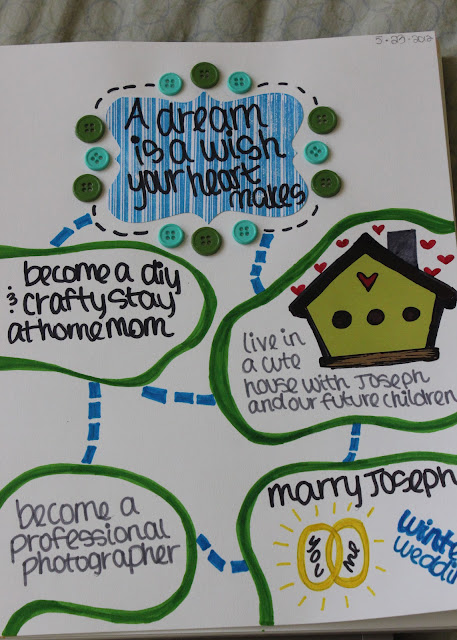 5-23-2012
A dream
is a wish
your heart
makes
become a diy
& crafty stay
at home mom
live in
a cute
house with Joseph
and our future children
become a
professional
photographer
marry Joseph
you
me
winter